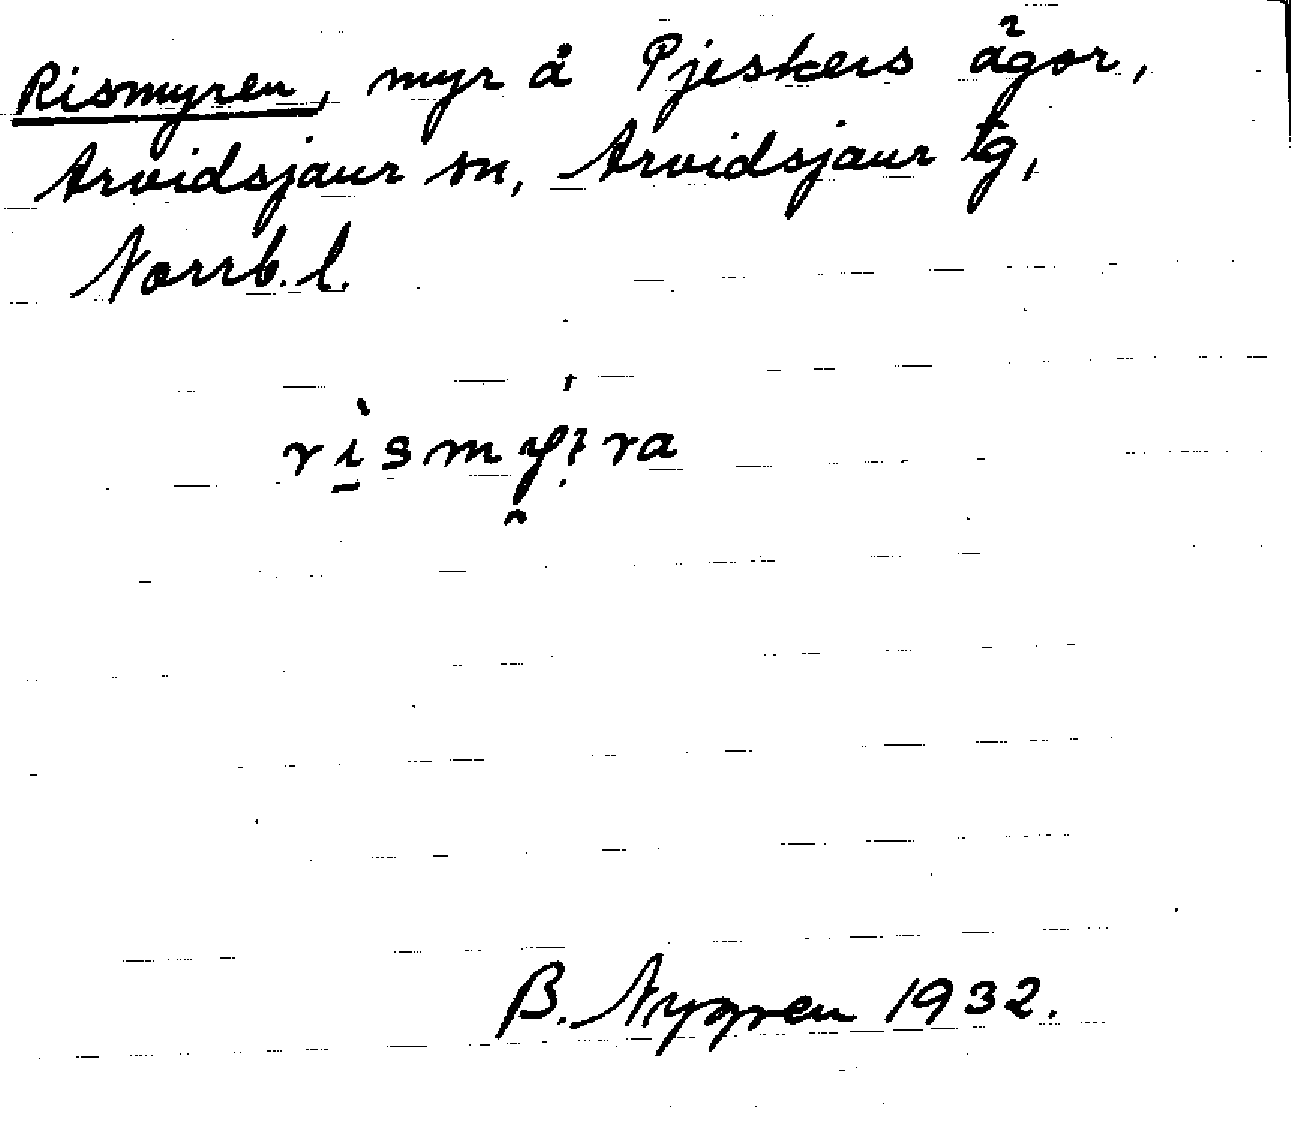 Rismyren, myr å Pjeskers ägor,
Arvidsjaur sn, Arvidsjaur tg,
Norrb. l.
B. Nygren 1932.